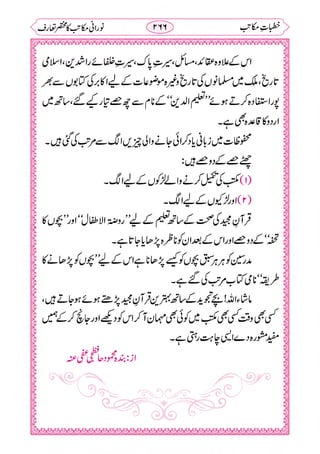 خطباتِ مکاتب ۲۶۶ نورانی مکاتب کا مختصر تعارف
اس کے علاوہ عقائد، مسائل، سیرتِ پاک، سیرتِ خلفائے راشدین، اسلامی
تاریخ، ملک میں مسلمانوں کی تاریخ وغیرہ موضوعات کے لیے اکابر کی کتابوں سے بھر
پورا استفادہ کرتے ہوئے ’’تعلیم الدین‘‘ کے نام سے چھ حصے تیار کیے گئے، ساتھ میں
اردو کا قاعدہ بھی ہے۔
محفوظات میں زبانی یاد کرائی جانے والی چیزیں الگ سے مرتب کی گئی ہیں۔
چھٹے حصے کے دو حصے ہیں:
(۱) مکتب کی تکمیل کرنے والے لڑکوں کے لیے الگ۔
(۲) اور لڑکیوں کے لیے الگ۔
قرآنِ مجید کی صحت کے ساتھ تعلیم کے لیے ’’روضۃ الاطفال‘‘ اور ’’بچوں کا
تحفہ‘‘ کے دو حصے اور اس کے بعد ان کو ناظرہ پڑھایا جاتا ہے۔
مدرسین کو ہر ہر سبق بچوں کو کیسے پڑھانا ہے اس کے لیے ’’بچوں کو پڑھانے کا
طریقہ‘‘ نامی کتاب مرتب کی گئی ہے۔
ماشاء اللہ! بچے تجوید کے ساتھ بہترین قرآنِ مجید پڑھتے ہوئے ہو جاتے ہیں،
کسی بھی وقت کسی بھی مکتب میں کوئی بھی مہمان آ کر اس کو دیکھے اور جانچ کر کے ہمیں
مفید مشورہ دے ایسی چاہت رہتی ہے۔
از: بندہ محمود حافظجی عفی عنہ